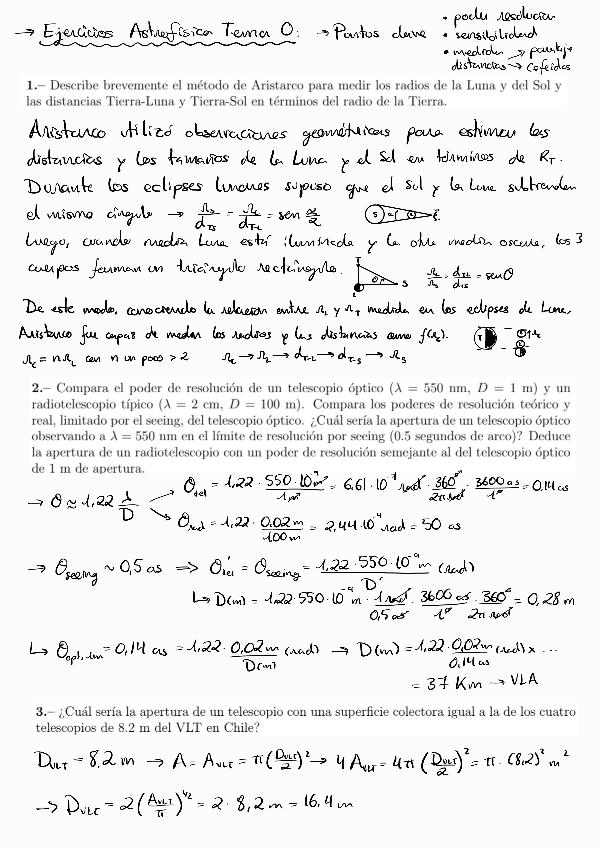 → Ejercicios Astrofísica Tema 0: → Puntos clave
• poder resolución
• sensibilidad
• medidas distancias → paralaje → Cefeidas
1.– Describe brevemente el método de Aristarco para medir los radios de la Luna y del Sol y
las distancias Tierra-Luna y Tierra-Sol en términos del radio de la Tierra.
Aristarco utilizó observaciones geométricas para estimar las
distancias y los tamaños de la Luna y el Sol en términos de R_T.
Durante los eclipses lunares supuso que el Sol y la Luna subtienden
el mismo ángulo → r_s/d_TS = r_L/d_TL = sen α/2
Luego, cuando media Luna está iluminada y la otra media oscura, los 3
cuerpos forman un triángulo rectángulo. r_L/r_s = d_TL/d_TS = senθ
De este modo, conociendo la relación entre r_L y r_T medida en los eclipses de Luna,
Aristarco fue capaz de medir los radios y las distancias como f(r_T).
r_c = n r_L con n un poco > 2 r_c → r_L → d_T-L → d_T-S → r_s
2.– Compara el poder de resolución de un telescopio óptico (λ = 550 nm, D = 1 m) y un
radiotelescopio típico (λ = 2 cm, D = 100 m). Compara los poderes de resolución teórico y
real, limitado por el seeing, del telescopio óptico. ¿Cuál sería la apertura de un telescopio óptico
observando a λ = 550 nm en el límite de resolución por seeing (0.5 segundos de arco)? Deduce
la apertura de un radiotelescopio con un poder de resolución semejante al del telescopio óptico
de 1 m de apertura.
→ θ ≈ 1,22 λ/D
θ_tel = 1,22 · 550·10⁻⁹m/1m = 6,61·10⁻⁷ rad · 360°/2π rad · 3600 as/1° = 0.14 as
θ_rad = 1,22 · 0.02m/100m = 2,44·10⁻⁴ rad = 50 as
→ θ_seeing ~ 0,5 as ⇒ θ'_tel = θ_seeing = 1,22 · 550·10⁻⁹m/D' (rad)
↳ D(m) = 1,22·550·10⁻⁹ m · 1 rad/0,5 as · 3600 as/1° · 360°/2π rad = 0,28 m
↳ θ_opt,1m = 0,14 as = 1,22 · 0,02m/D(m) (rad) → D(m) = 1,22 · 0,02m/0,14 as (rad) x ...
= 37 Km → VLA
3.– ¿Cuál sería la apertura de un telescopio con una superficie colectora igual a la de los cuatro
telescopios de 8.2 m del VLT en Chile?
D_VLT = 8,2 m → A = A_VLT = π(D_VLT/2)² → 4 A_VLT = 4π (D_VLT/2)² = π · (8,2)² m²
→ D_VLT = 2 (A_VLT/π)^1/2 = 2 · 8,2 m = 16,4 m